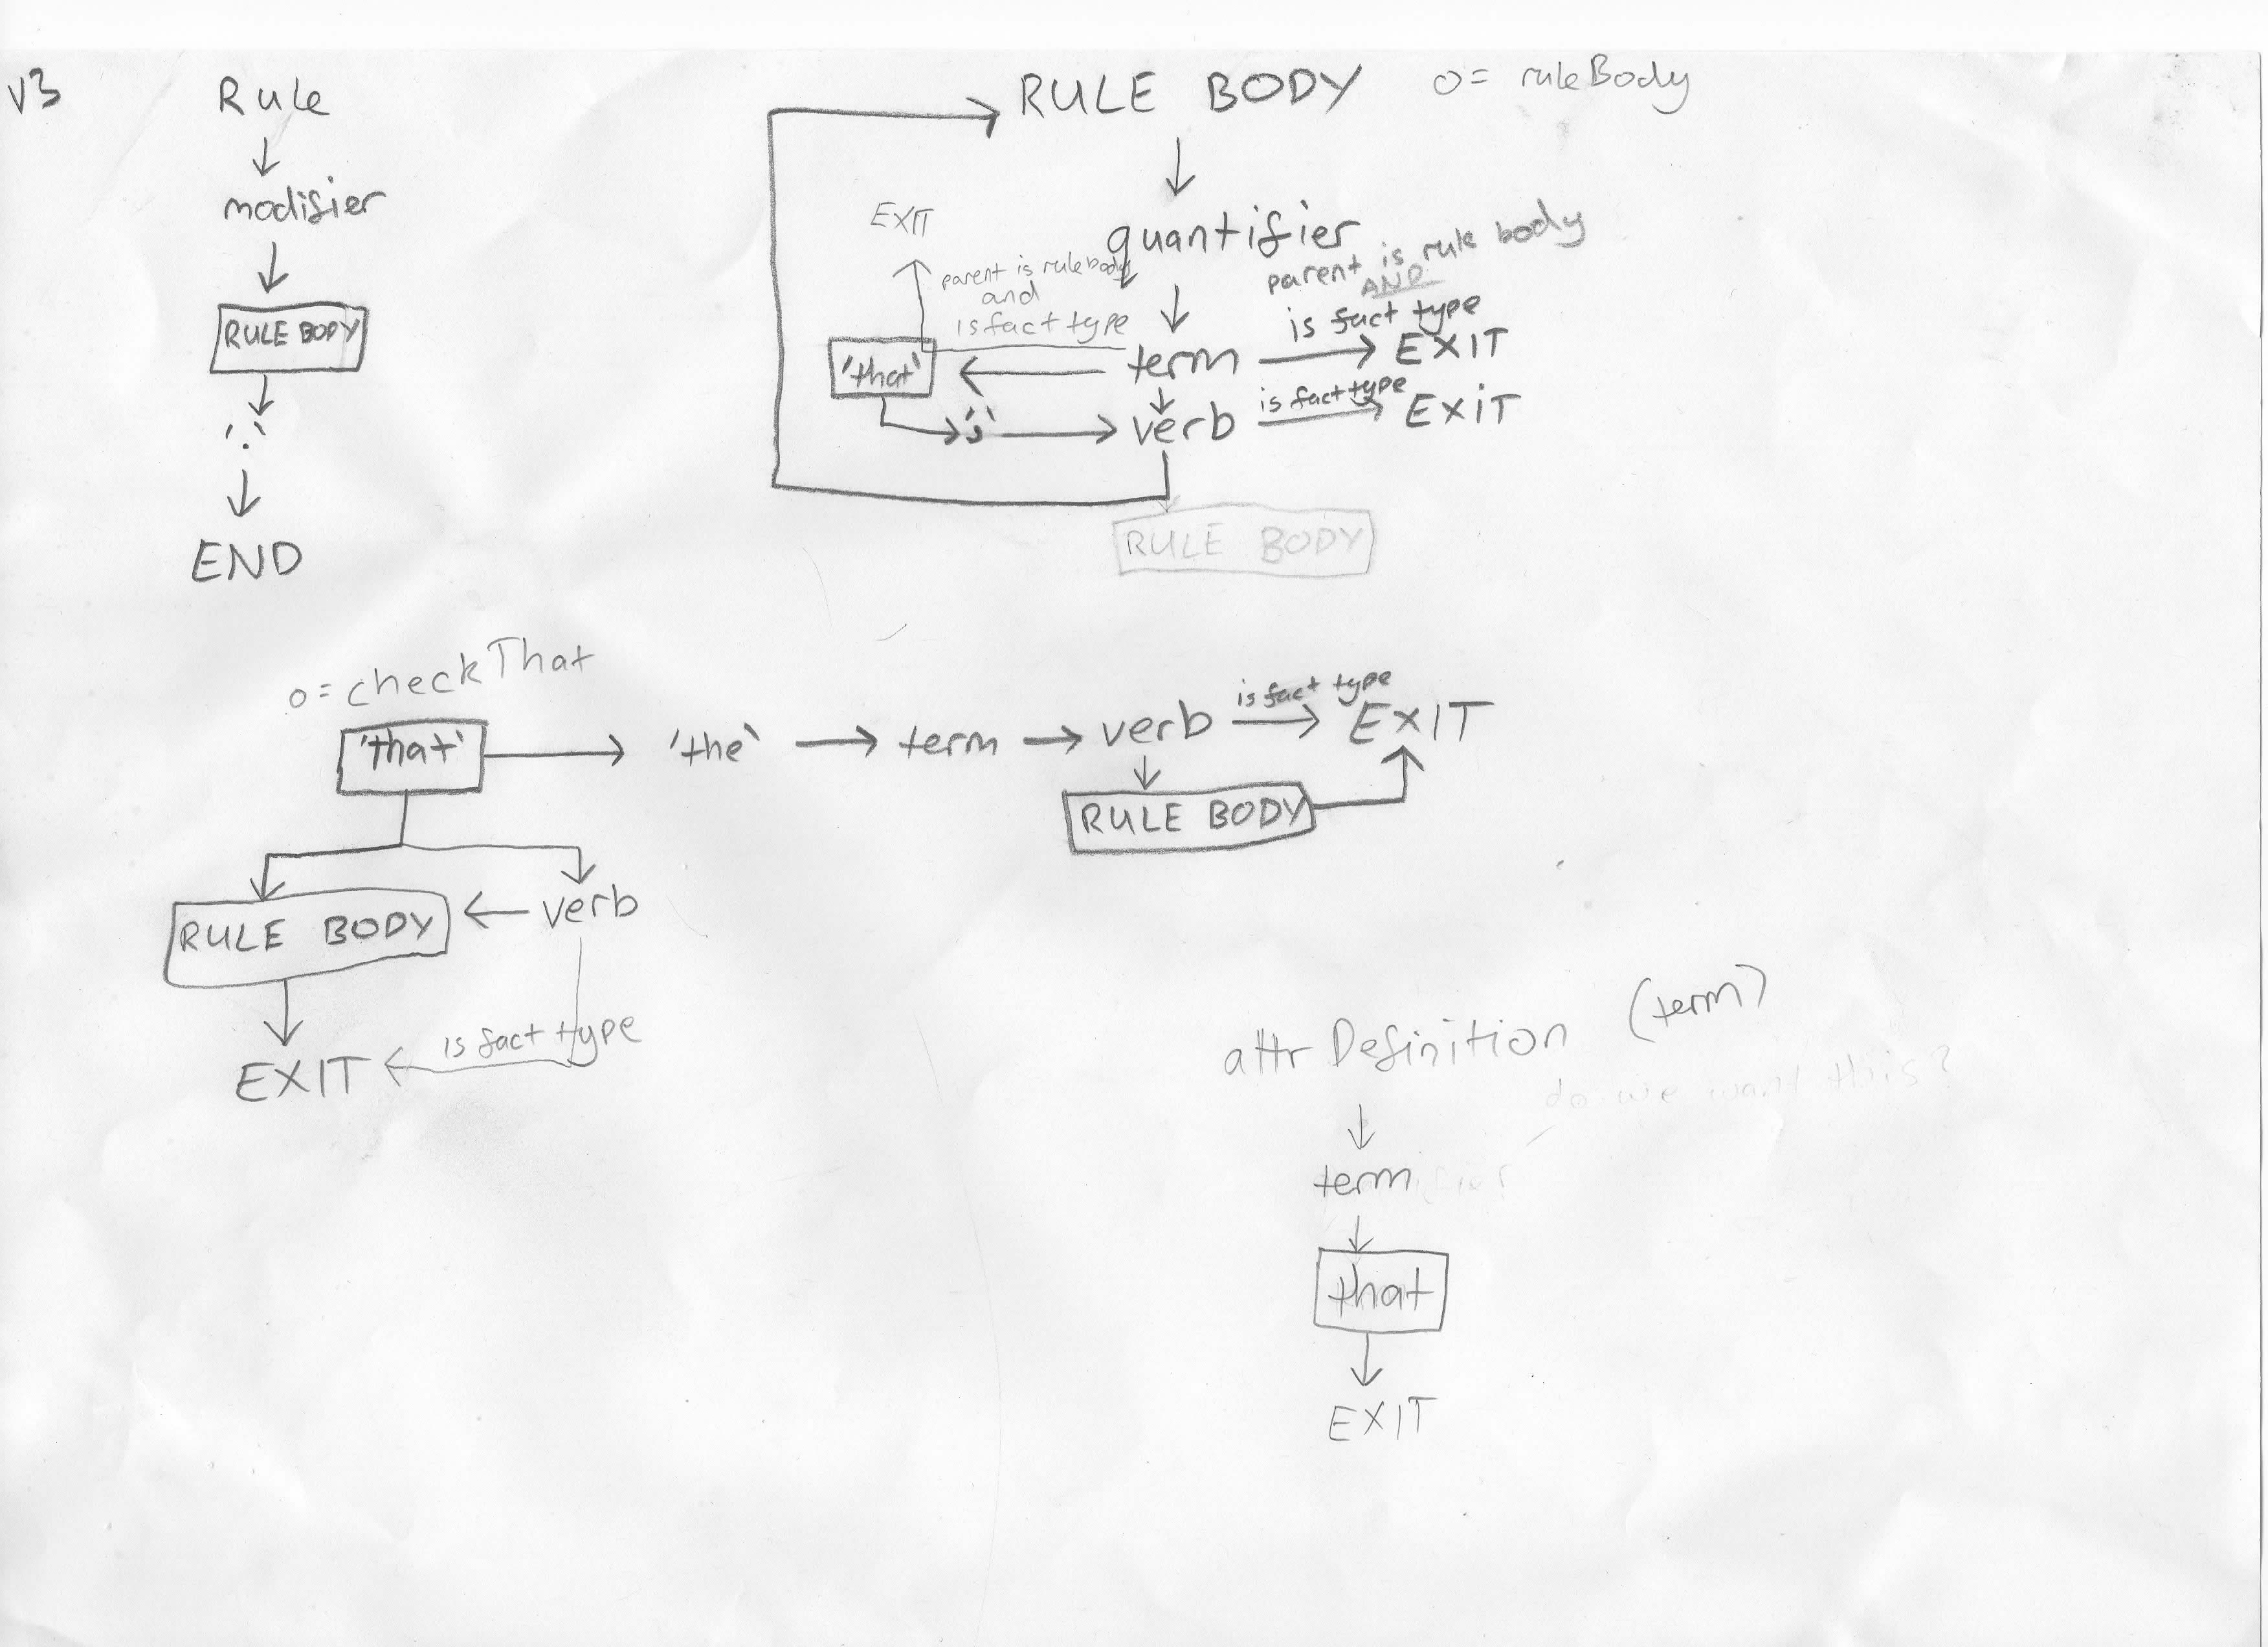 v3
Rule
modifier
RULE BODY
'.'
END
RULE BODY o= ruleBody
quantifier
EXIT
parent is rulebody
and
is fact type
parent is rule body
AND
is fact type
'that'
term
EXIT
';'
verb
is fact type
EXIT
RULE BODY
o= checkThat
'that'
'the'
term
verb
is fact type
EXIT
RULE BODY
RULE BODY
verb
is fact type
EXIT
attr Definition (term)
do we want this?
term
that
EXIT